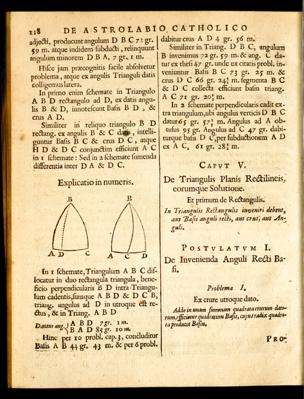 218 DE ASTROLABIO CATHOLICO
adjecti, producunt angulum D B C 72 gr.
59 m. atque indidem subducti, relinquunt
angulum minorem D B A, 7 gr. 1 m.
Hisce jam præcognitis facile absolvetur
problema, atque ex angulis Trianguli datis
colligentur latera.
In primo enim schemate in Triangulo
A B D rectangulo ad D, ex datis angu-
lis B & D, innotescunt Basis B D, &
crus A D.
Similiter in reliquo triangulo B D
rectang. ex angulis B & C datis, intelli-
guntur Basis B C & crus D C, atque
H D & D C conjunctim efficiunt A C
in 1 schemate : Sed in 2 schemate sumenda
differentia inter D A & D C.
Explicatio in numeris.
B B
A D C A C D
In 1 schemate, Triangulum A B C dif-
in duo rectangula triangula, bene-
ficio perpendicularis B D intra Triangu-
lum cadentis, suntque A B D & D C B,
triang. angulus ad D in utroque est re-
ctus, & in Triang. A B D
Dantur ang. A B D 7 gr. 1 m.
B A D 85 gr. 10 m.
Hinc per 10 probl. cap. 3, concluditur
Basis A B 44 gr. 43 m. & per 6 probl.
dabitur crus A D 4 gr. 56 m.
Similiter in Triang. D B C, angulum
B invenimus 72 gr. 59 m. & ang. C da-
tur ex thesi 67 gr. unde ex citatis probl. in-
veniuntur Basis B C 73 gr. 25 m. &
crus D C 66 gr. m. segmenta B C
& D C collecta efficiunt basin triang.
A C 71 gr. m.
In 2 schemate perpendicularis cadit ex-
tra triangulum, ubi angulus verticis D B C
datur 65 gr. m. Angulus ad A ob-
tusus 95 gr. Angulus ad C 47 gr. dabi-
turque basis D C, per subductionem A D
ex A C, 61 gr. m.
CAPUT V.
De Triangulis Planis Rectilineis,
eorumque Solutione.
Et primum de Rectangulis.
In Triangulis Rectangulis inveniri debent,
aut Basis anguli recti, aut crus, aut An-
gulus.
POSTULATUM I.
De Invenienda Anguli Recti Ba-
si.
Problema I.
Ex crure utroque dato.
Adde in unam summam quadrata crurum dato-
rum, efficiuntur quadratum Basis, cujus radix quadra-
ta producet Basin.
PRO-